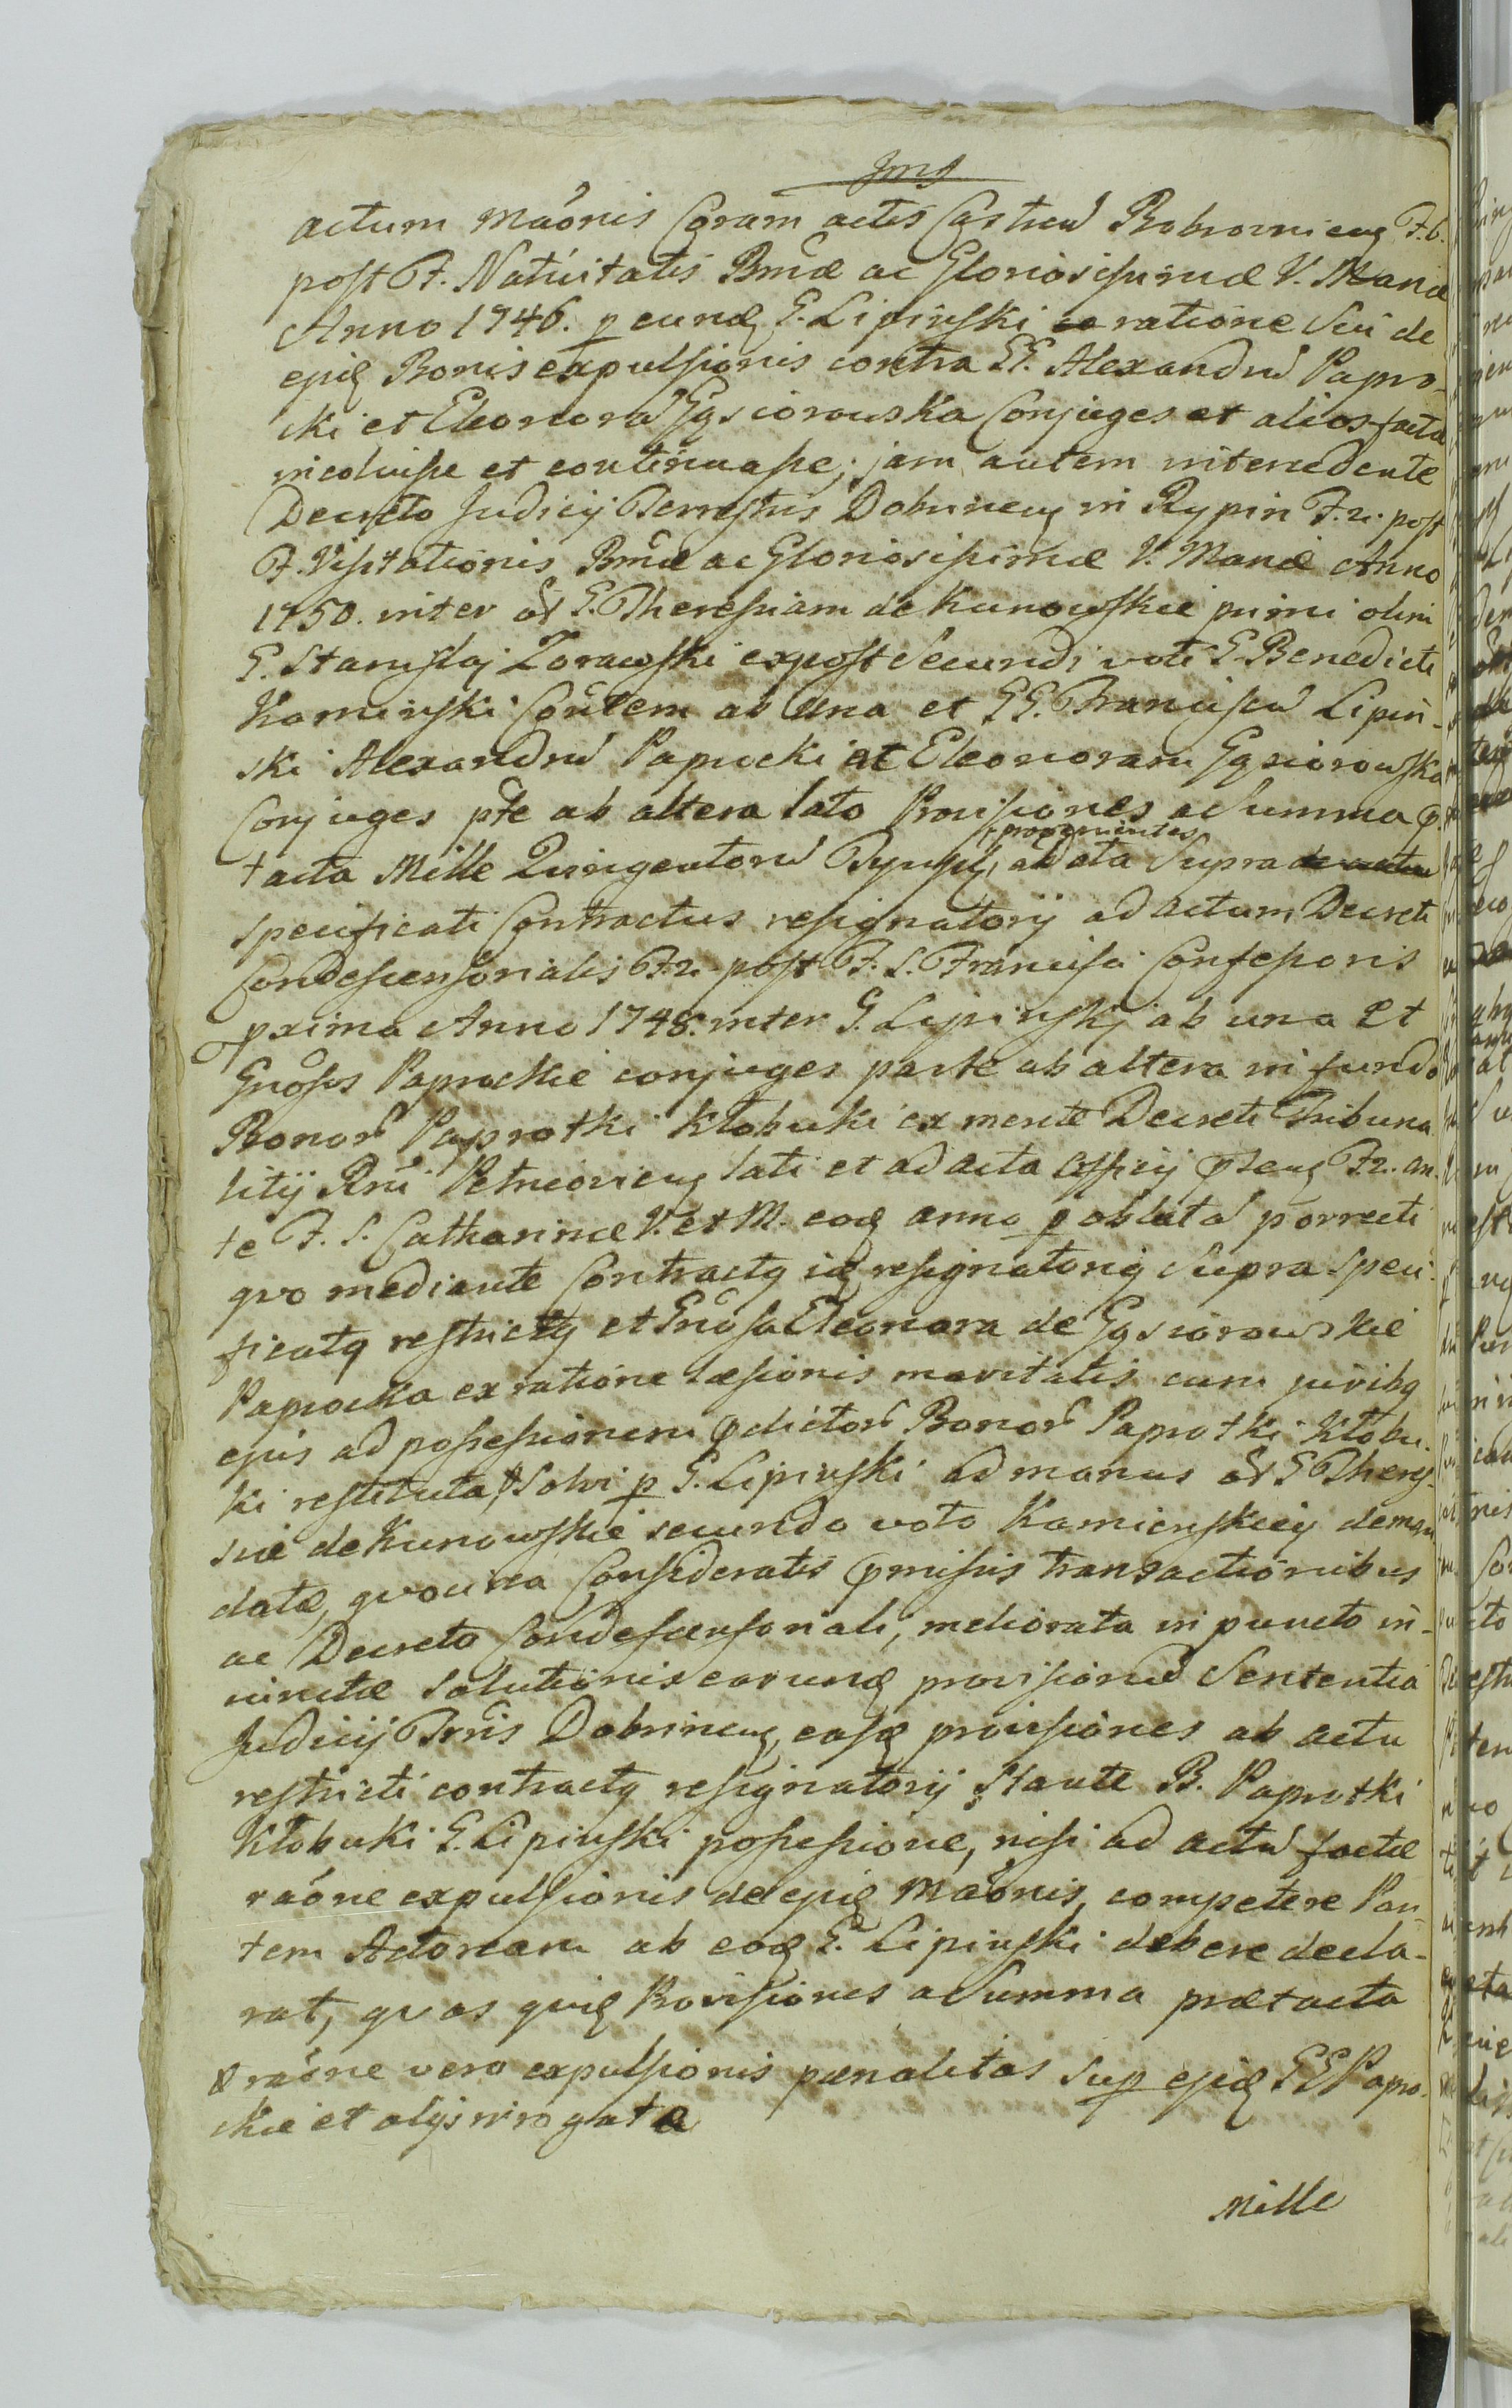 actum maónis Coram actis Castren̄ Bobrovnicen̄ F. 6.
post F. Natiuitatis Bmæ ac Gloriosissimæ V. Mariæ
Anno 1746. p eundē G. Lipinski ratione Seu de
ejusdē Bonis expulsionis contra GG. Alexandrū Papro-
cki et Eleonorā Gąsiorowska Conjuges et alios facta
incoluisse et continuasse; jam autem intercedente
Decreto Judicij Terrestris Dobrinen̄ in Rypin F. 2. post
F. Visitationis Bmæ ac Gloriosissimæ V. Mariæ Anno
1750. inter G. Theresiam de Kunowskie primi olim
G. Stanislaj Zorawski expost Secundi voti G. Benedicti
Kaminski Cōrtem ab una et GG. Franciscū Lipin-
ski Alexandrū Paprocki et Eleonoram Gąsiorowska
Conjuges pte ab altera lato Provisiones a Summa p
tacta Mille Quingentorū Tynph, provenientes ab ata Supra
specificati Contractus resignatorij ad actum Decreti
Condescensorialis F. 2. post F. S. Francisci Confessoris
pxima Anno 1748. inter G. Lipinskj ab una et
Gnosos Paprockie conjuges parte ab altera in fundo
Bonor̄ Paprotki Kłobuki ex mente Decreti Tribuna
litij Rni Petricovien̄ lati et ad acta Officij psen̄ F. 2. an-
te F. S. Catharinæ V. et M. eodē anno p oblatā porrecti
qvo mediante Contractq idē resignatorīq Supra speci-
ficatq restrictq et Gnosa Eleonora de Gąsiorowskie
Paprocka ex ratione læsionis maritatis cum juribq
ejus ad possessionem pdictor̄ Bonor̄ Paprotki Kłobu-
ki restituta, Solvi p G. Lipinski ad manus G There-
siæ de Kunowskie secundo voto Kamienskiey deman
datæ, qvocirca Consideratis pmissis transactionibus
ac Decreto Condescensoriali, meliorata in puncto in-
iunctæ Solutionis earundē provisionū Sententia
Judicij Trris Dobrinen̄, easdē provisiones ab actu
restricti contractq resignatorij Stante B. Paprotki
Kłobuki G. Lipinski possessione, nisi ad actū factæ
raóne expulsionis de ejisdē Maónis, competere Par-
tem Actoream ab eodē G. Lipinski debere decla-
rat, qvas quidē Provisiones a Summa prætacta
& raóne vero expulsionis pœnalitas Sup ejisdē GG Papro-
ckie et alijs irrogata
Mille